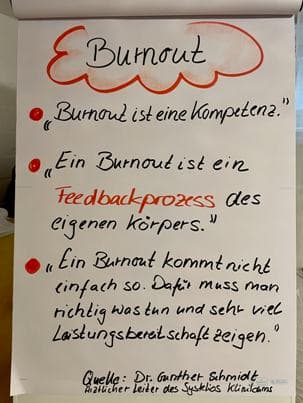 Burnout
„Burnout ist eine Kompetenz."
„Ein Burnout ist ein
Feedbackprozess des
eigenen Körpers."
„Ein Burnout kommt nicht
einfach so. Dafür muss man
richtig was tun und sehr viel
Leistungsbereitschaft zeigen."
Quelle: Dr. Gunther Schmidt
Ärztlicher Leiter des Systelios Klinikums